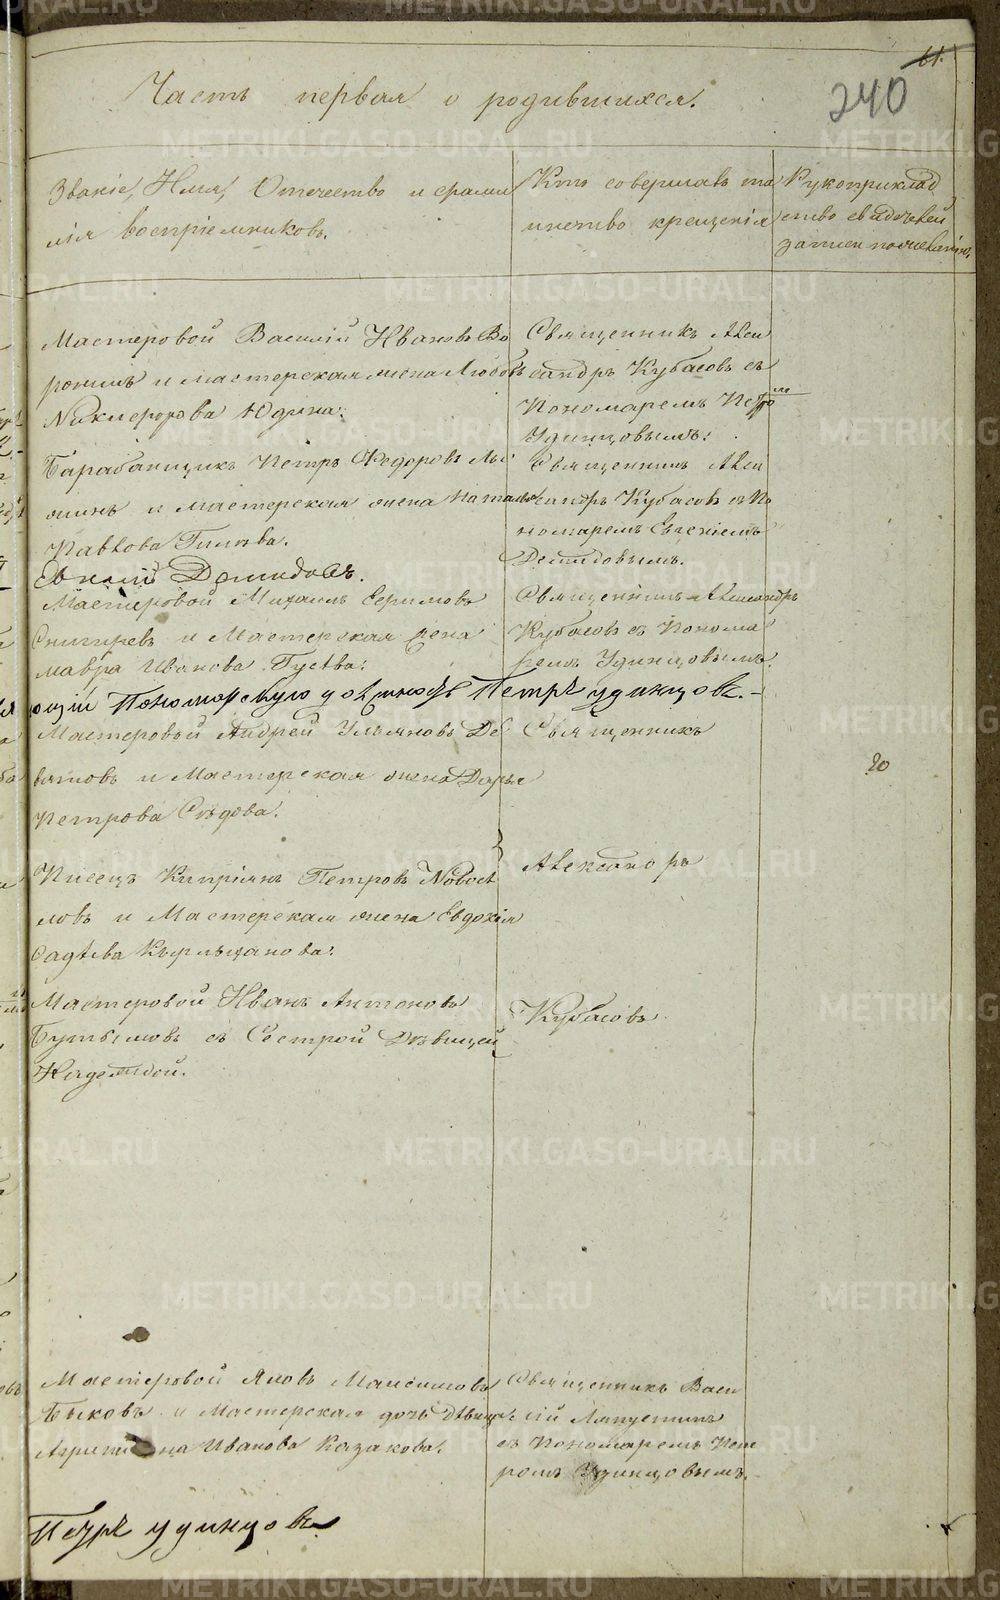 61.
240
Часть первая о родившихся.
Званіе, Имя, Отечество и фами
лія воспріемниковъ.
Кто совершавъ та
инство крещенія
Рукоприклад
ство свидетелей
записи по желанію.
Мастеровой Василій Ивановъ Во
ронинъ и мастерская жена Любовь
Никифорова Юдина.
Священникъ Алек
сандръ Кубасовъ съ
Пономаремъ Петро
Удинцовымъ.
Барабанщикъ Петръ Федоровъ
и мастерская жена Наталья
Павлова
Евгений Демидовъ.
Священникъ Алек
сандръ Кубасовъ съ По
номаремъ Евгеніемъ
Демидовымъ.
Мастеровой Михаилъ Ефимовъ
Снигиревъ и Мастерская жена
Мавра Иванова Гусева.
Священникъ Александръ
Кубасовъ съ Понома
ремъ Удинцовымъ.
ющій Пономарскую должность Петръ Удинцовъ.
Мастеровой Андрей Ульяновъ Де
вятовъ и Мастерская жена Дарья
Петрова Съдова.
Священникъ
20
Писецъ Кипріянъ Петровъ Новосе
ловъ и Мастерская жена Евдокія
Фадѣева
Александръ
Мастеровой Иванъ Антоновъ
съ Сестрой Дѣвицей
Надеждой.
Кубасовъ
Мастеровой Яковъ Максимовъ
Быковъ и Мастерская дочь Дѣвица
Иванова Казакова.
Священникъ Васи
лій Лапустинъ
съ Пономаремъ Пет
ромъ Удинцовымъ.
Петръ Удинцовъ
METRIKI.GASO-URAL.RU